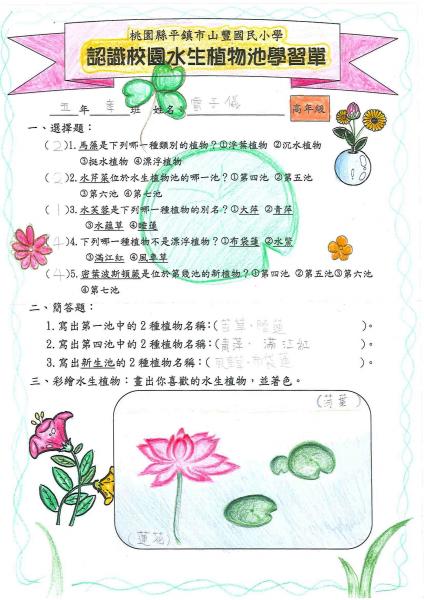 桃園縣平鎮市山豐國民小學
認識校園水生植物池學習單
五年孝班 姓名: 高年級
一、選擇題:
(2)1.馬藻是下列哪一種類別的植物?①浮葉植物 ②沉水植物
③挺水植物 ④漂浮植物
(2)2.水芹菜位於水生植物池的哪一池?①第四池 ②第五池
③第六池 ④第七池
(1)3.水芙蓉是下列哪一種植物的別名?①大萍 ②青萍
③水蘊草 ④睡蓮
(4)4.下列哪一種植物不是漂浮植物?①布袋蓮 ②水鱉
③滿江紅 ④風車草
(4)5.密葉波斯頓蕨是位於第幾池的新植物?①第四池 ②第五池③第六池
④第七池
二、簡答題:
1.寫出第一池中的2種植物名稱:(苦草、睡蓮)。
2.寫出第四池中的2種植物名稱:(青萍、滿江紅)。
3.寫出新生池的2種植物名稱:(布袋蓮)。
三、彩繪水生植物:畫出你喜歡的水生植物,並著色。
(荷葉)
(蓮花)